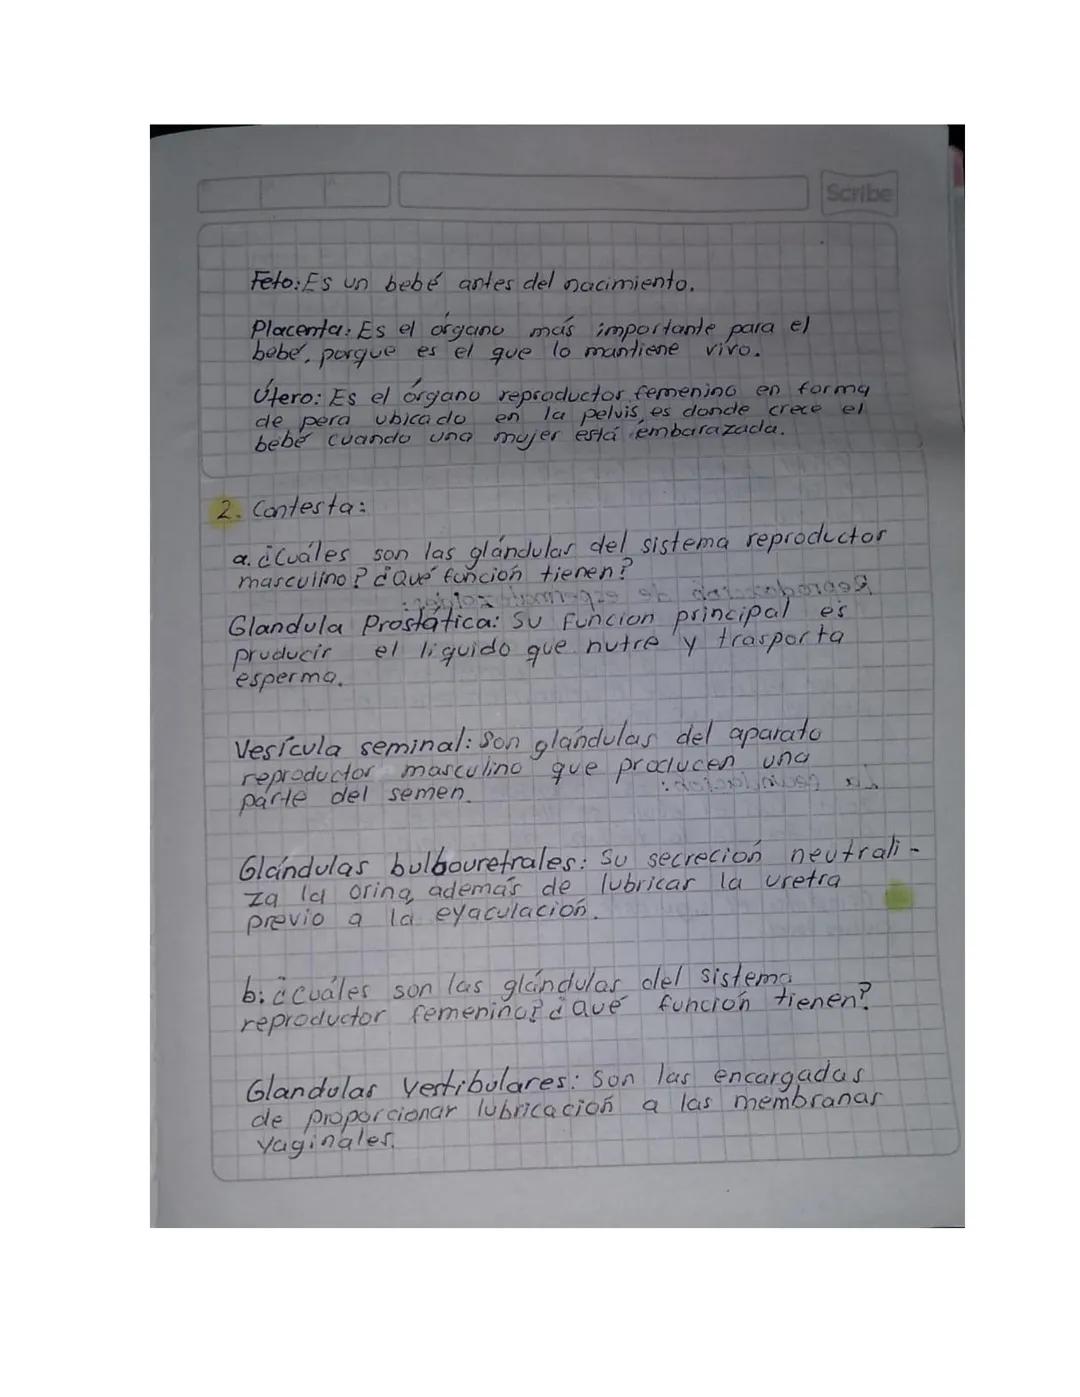 Scribe
Feto: Es un bebé antes del nacimiento.
Placenta: Es el órgano más importante para el
bebé, porque es el que lo mantiene vivo.
Útero: Es el órgano reproductor femenino en forma
de pera ubicado en la pelvis, es donde crece el
bebé cuando una mujer está embarazada.
2. Contesta:
a. ¿Cuáles son las glándulas del sistema reproductor
masculino? ¿Qué función tienen?
Glandula Prostática: Su funcion principal es
producir el liquido que nutre y trasporta
esperma.
Vesícula seminal: Son glándulas del aparato
reproductor masculino que producen una
parte del semen.
Glándulas bulbouretrales: Su secreción neutrali-
za la orina además de lubricar la uretra
previo a la eyaculación.
b: ¿Cuáles son las glándulas del sistema
reproductor femenino? ¿Qué función tienen?
Glandulas Vestibulares: Son las encargadas
de proporcionar lubricación a las membranas
vaginales.